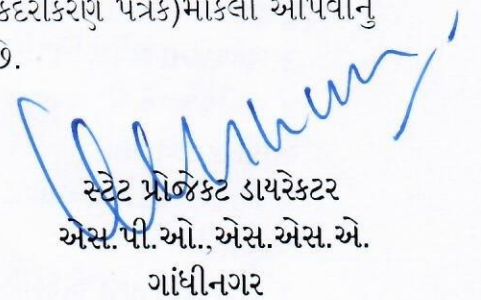 કદરીકરણ પત્રક)મોકલી આપવાનું
છે.
સ્ટેટ પ્રોજેકટ ડાયરેકટર
એસ.પી.ઓ.,એસ.એસ.એ.
ગાંધીનગર